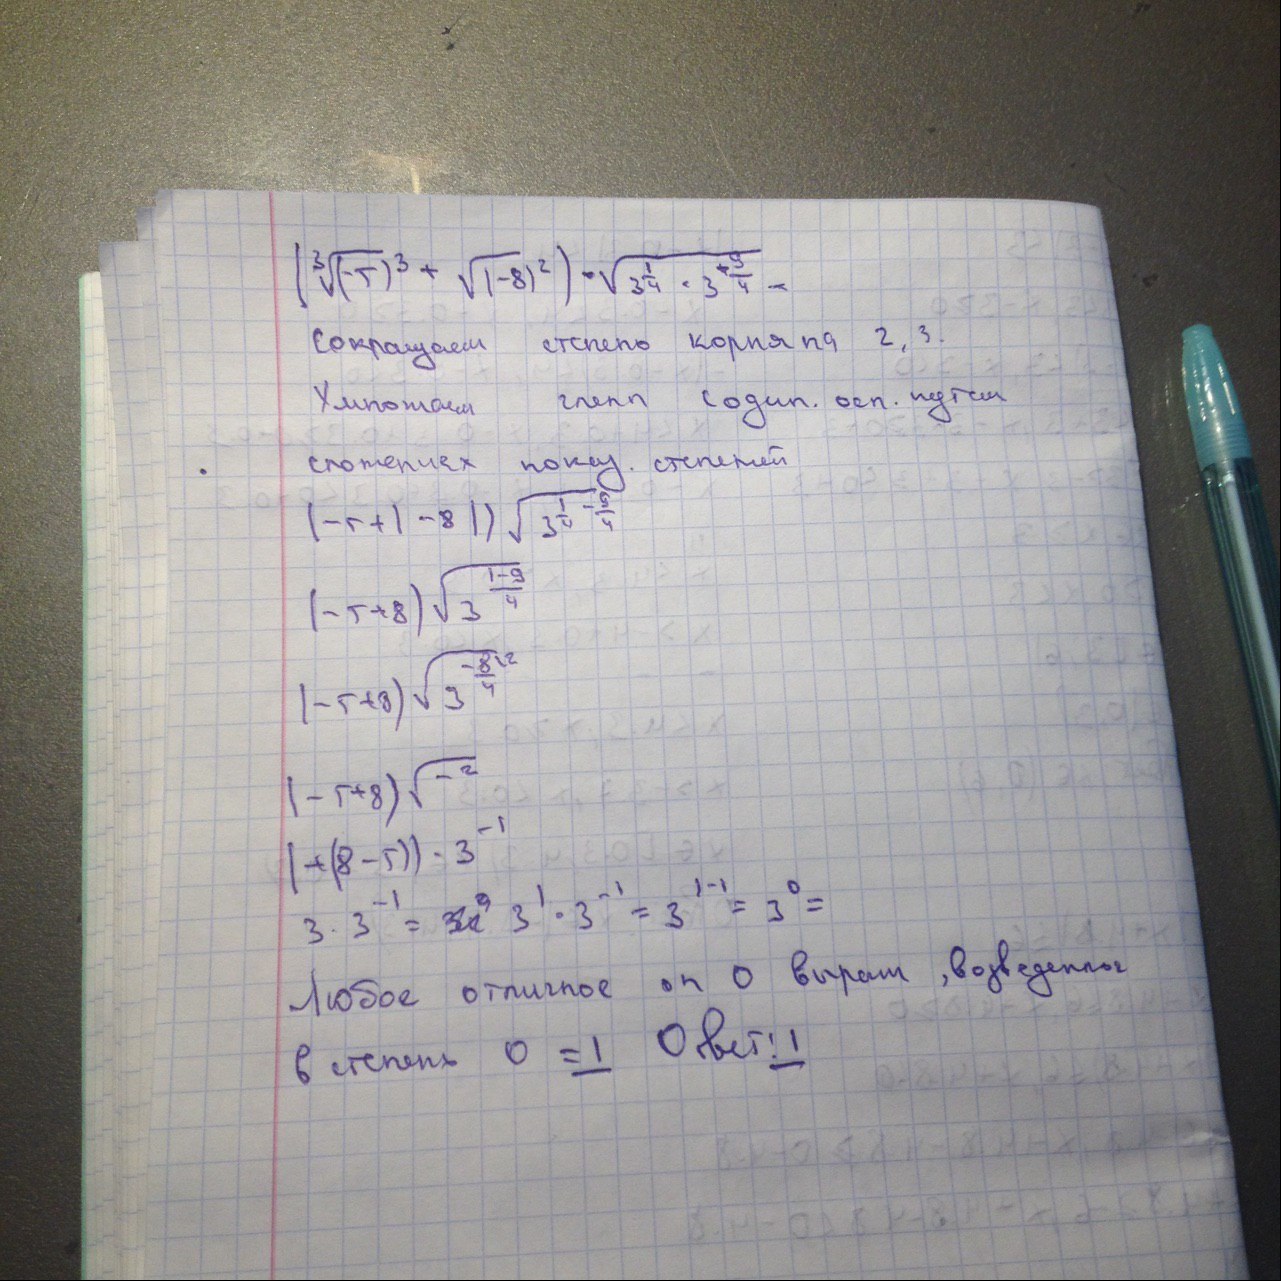 (∛(-5)³ + √(-8)²) · √(3^(1/4) · 3^(-9/4)) =
Сокращаем степень корня на 2, 3.
Умножаем член с один. осн. путем
сложениях показ. степеней
(-5+|-8|) √(3^(1/4 - 9/4))
(-5+8) √(3^((1-9)/4))
(-5+8) √(3^(-8/4)) 2
(-5+8) √(-2)
(+(8-5)) · 3^(-1)
3 · 3^(-1) = 3^1 · 3^(-1) = 3^(1-1) = 3^0 =
Любое отличное оп 0 выраж, возведенное
в степень 0 = 1 Ответ: 1